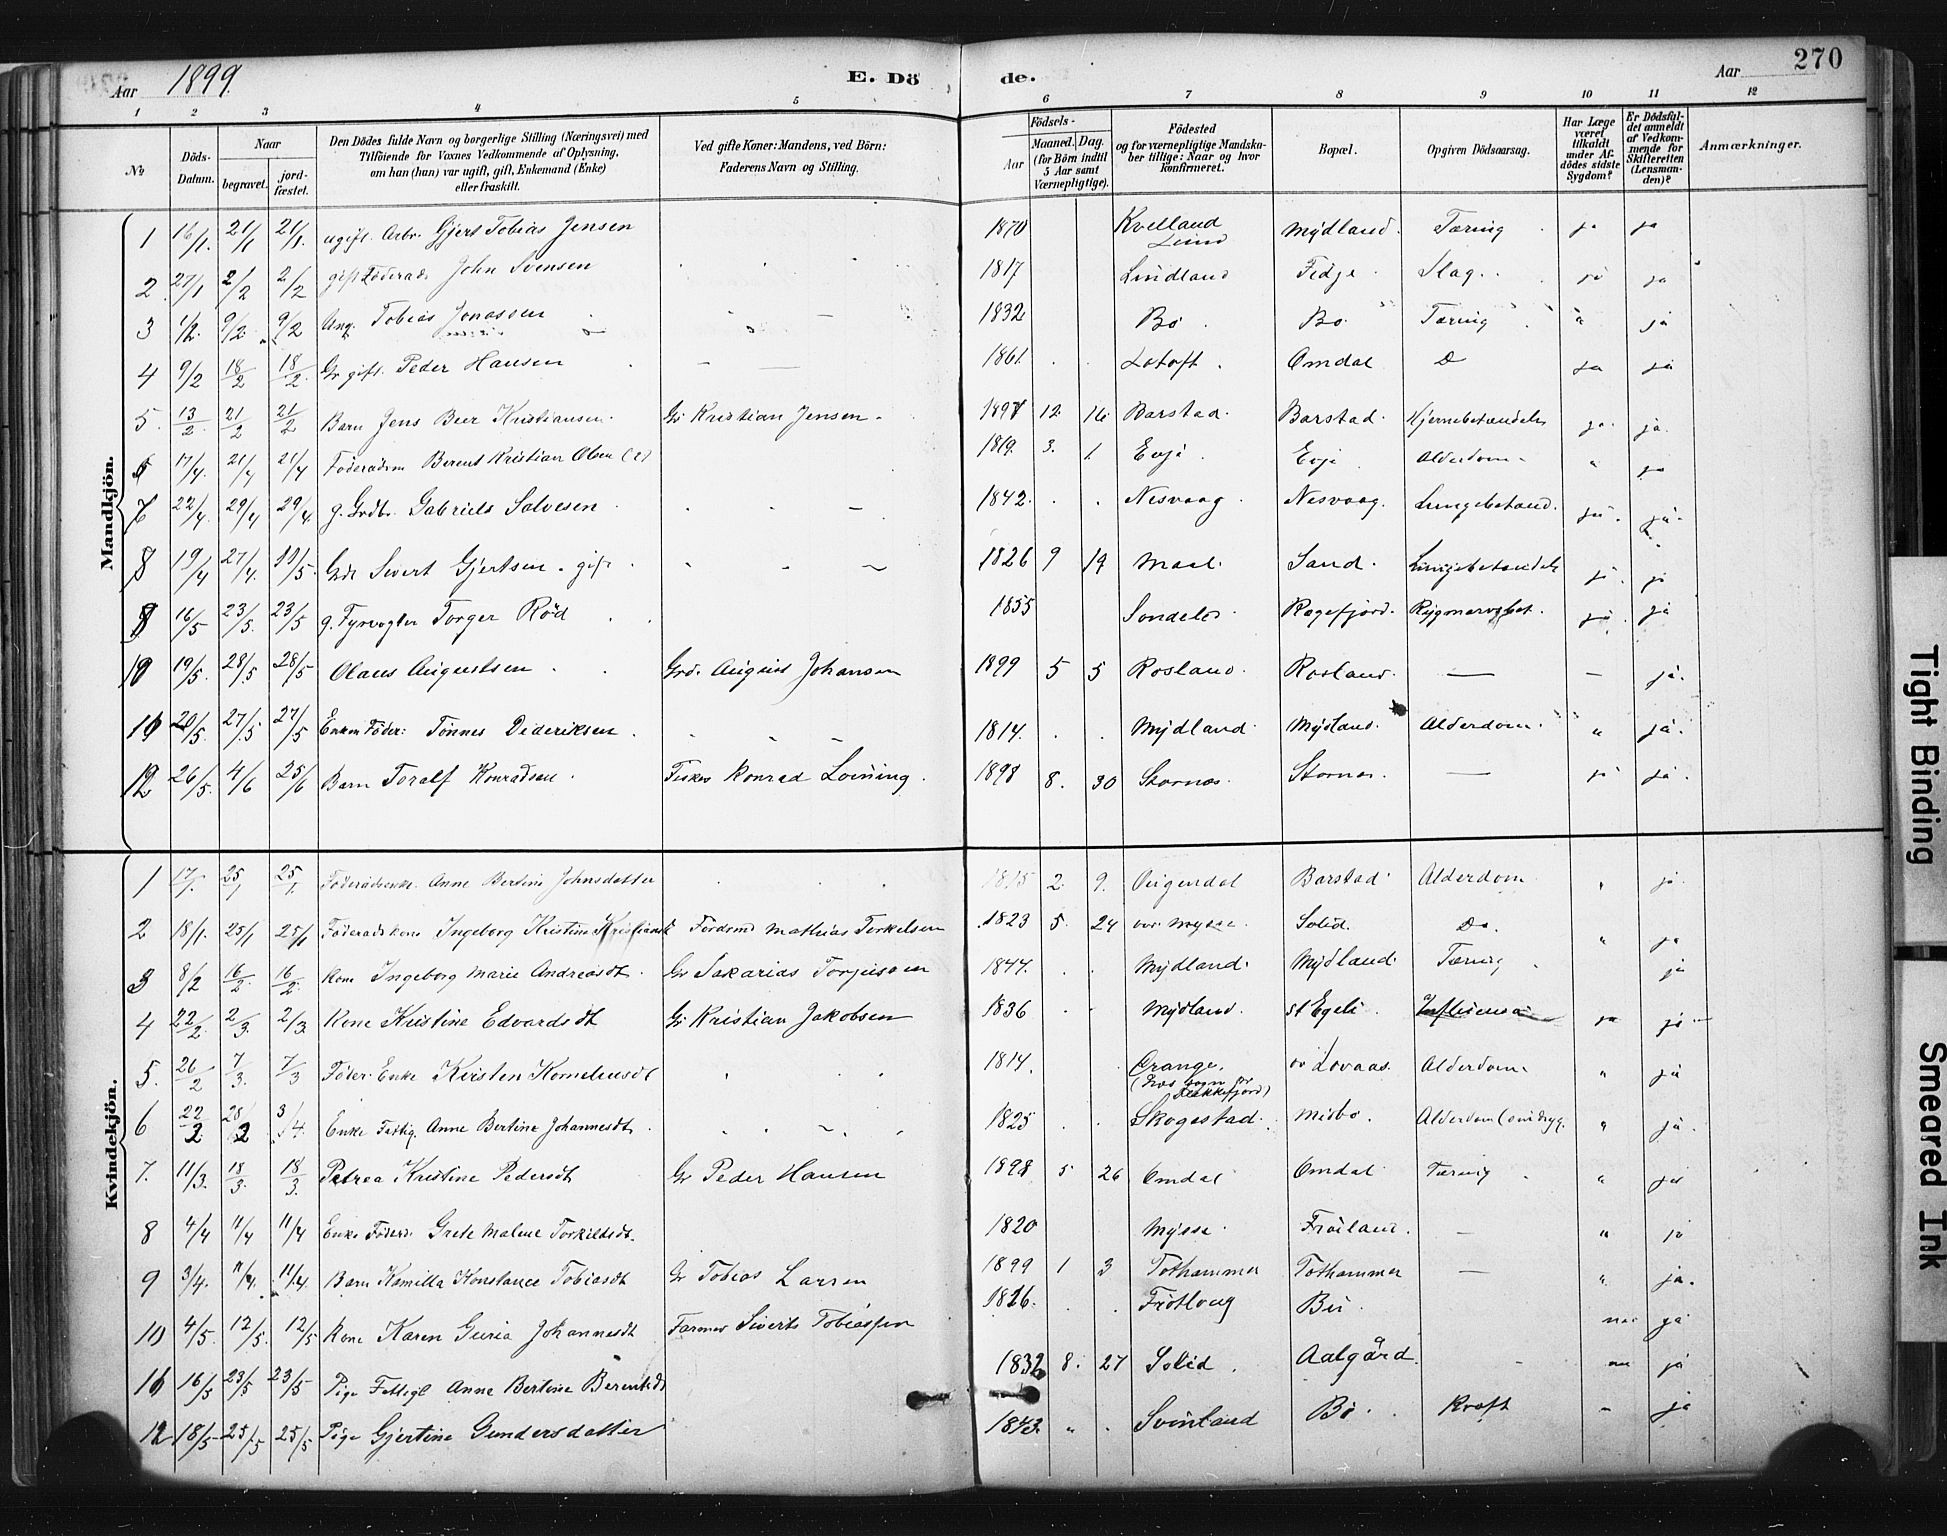 Aar 1899. E. Dö de. Aar 270
1 2 3 4 5 6 7 8 9 10 11 12
No
Döds-Datum.
Naar
begravet. jord-fæstet.
Den Dödes fulde Navn og borgerlige Stilling (Næringsvei) med Tilföiende for Voxnes Vedkommende af Oplysning, om han (hun) var ugift, gift, Enkemand (Enke) eller fraskilt.
Ved gifte Koner: Mandens, ved Börn: Faderens Navn og Stilling.
Födsels-
Aar Maaned. Dag.
(for Börn indtil 5 Aar samt Værnepligtige).
Födested og for værnepligtige Mandskaber tillige: Naar og hvor konfirmeret.
Bopæl.
Opgiven Dödsaarsag.
Har Læge været tilkaldt under Afdödes sidste Sygdom?
Er Dödsfaldet anmeldt af Vedkommende for Skifteretten (Lensmanden)?
Anmærkninger.
Mandkjön.
1 16/1. 21/1 21/1. ugift. Arbr. Gjert Tobias Jensen 1870 Kvelland Lund Mydland. Tæring ja ja
2 27/1 2/2 2/2 gift Föderaads John Svensen 1817 Lindland Fidje Slag. ja ja
3 1/2. 9/2. 9/2 Tobias Jonassen 1832 Bö Bö Tæring " ja
4 9/2 18/2 18/2. Gr gift. Peder Hansen — — 1861. Lotoft Omdal Do ja ja
5. 13/2 21/2 21/2 Barn Jens Beer Kristiansen. Gr Kristian Jensen. 1897 12. 16. Barstad. Barstad. Hjernebetændelse ja. ja.
6 17/4. 21/4 21/4 Föderadsm Berent Kristian Olsen 1819. 3. 1. Evje Evje Alderdom " ja
7 22/4. 29/4 29/4 g. Grdbr. Gabriels Salvesen 1842. Nesvaag. Nesvaag. Lungebetænd. ja. ja.
8 19/4 27/4. 10/5. Grdr Sivert Gjertsen. gift 1826 9 19 Maal Sand. Lungebetændelse ja. ja
9 16/5 23/5. 23/5 g. Fyrvogter Torger Röd 1855 Söndeled. Rægefjord. Rygmarvsbet. ja. ja
10 19/5. 28/5 28/5 Olaus Augustsen Grd. August Johansen 1899 5 5 Rosland. Rosland. — — ja.
11 20/5. 27/5 27/5 Enkem Föder: Tönnes Dideriksen. 1814. Mydland. Mydland. Alderdom. " ja.
12 26/5. 4/6 25/6 Barn Toralf Konradsen. Fisker Konrad Löining. 1898 8. 30 Stornes. Stornes. — ja ja.
Kvindekjön.
1 17/1. 25/1 25/1. Föderaadsenke. Anne Bertine Johnsdatter 1815 2. 9. Barstad. Alderdom " ja.
2 18/1. 25/1 25/1 Föderadskone Ingeborg Kristine Kristiansdt Fördrmd Mathias Terkelsen 1823 5. 24 ovr. Mysse. Solid. Do. " ja
3 8/2 16/2. 16/2. Kone Ingeborg Marie Andreasdt. Gr Sakarias Torjusson 1844. Mydland. Mydland. Tæring ja
4 22/2. 2/3. 2/3 Kone Kristine Edvardsdt Gr Kristian Jakobsen 1836 Mydland. st Egeli. Influensa ja ja
5. 26/2 7/3. 7/3 Föder. Enke Kirsten Korneliusdt 1814. Orange. Flekkefjord) ov Lovaas. Alderdom. " ja
6 22/2 28/2 3/4. Enke Fattig. Anne Bertine Johannesdt. 1825 Skogestad. Misbö. Alderdom " ja.
7. 11/3. 18/3. 18/3. Petrea Kristine Pedersdt Gr Peder Hansen 1898 5 26 Omdal Omdal Tæring " ja
8 4/4 11/4 11/4 Enke Föderd. Grete Malene Torkildsdt. 1820 Mysse. Fröiland. — " ja
9 3/4. 11/4. 11/4 Barn Kamilla Konstance Tobiasdt Gr Tobias Larsen 1899 1 3 Tothammer Tothammer — " ja.
10 4/5. 12/5. 12/5 Kone Karen Guria Johannesdt Farmer Siverts Tobiassen 1826. Frötlong nei ja
11 16/5 23/5 23/5 Pige Fattigl Anne Bertine Berentsdt 1832 8. 27 Solid. Aalgård. ja
12 18/5 25/5 25/5 Pige Gjertine Gundersdatter 1843. " Svönland Bö. Kræft ja
Tight Binding
Smeared Ink